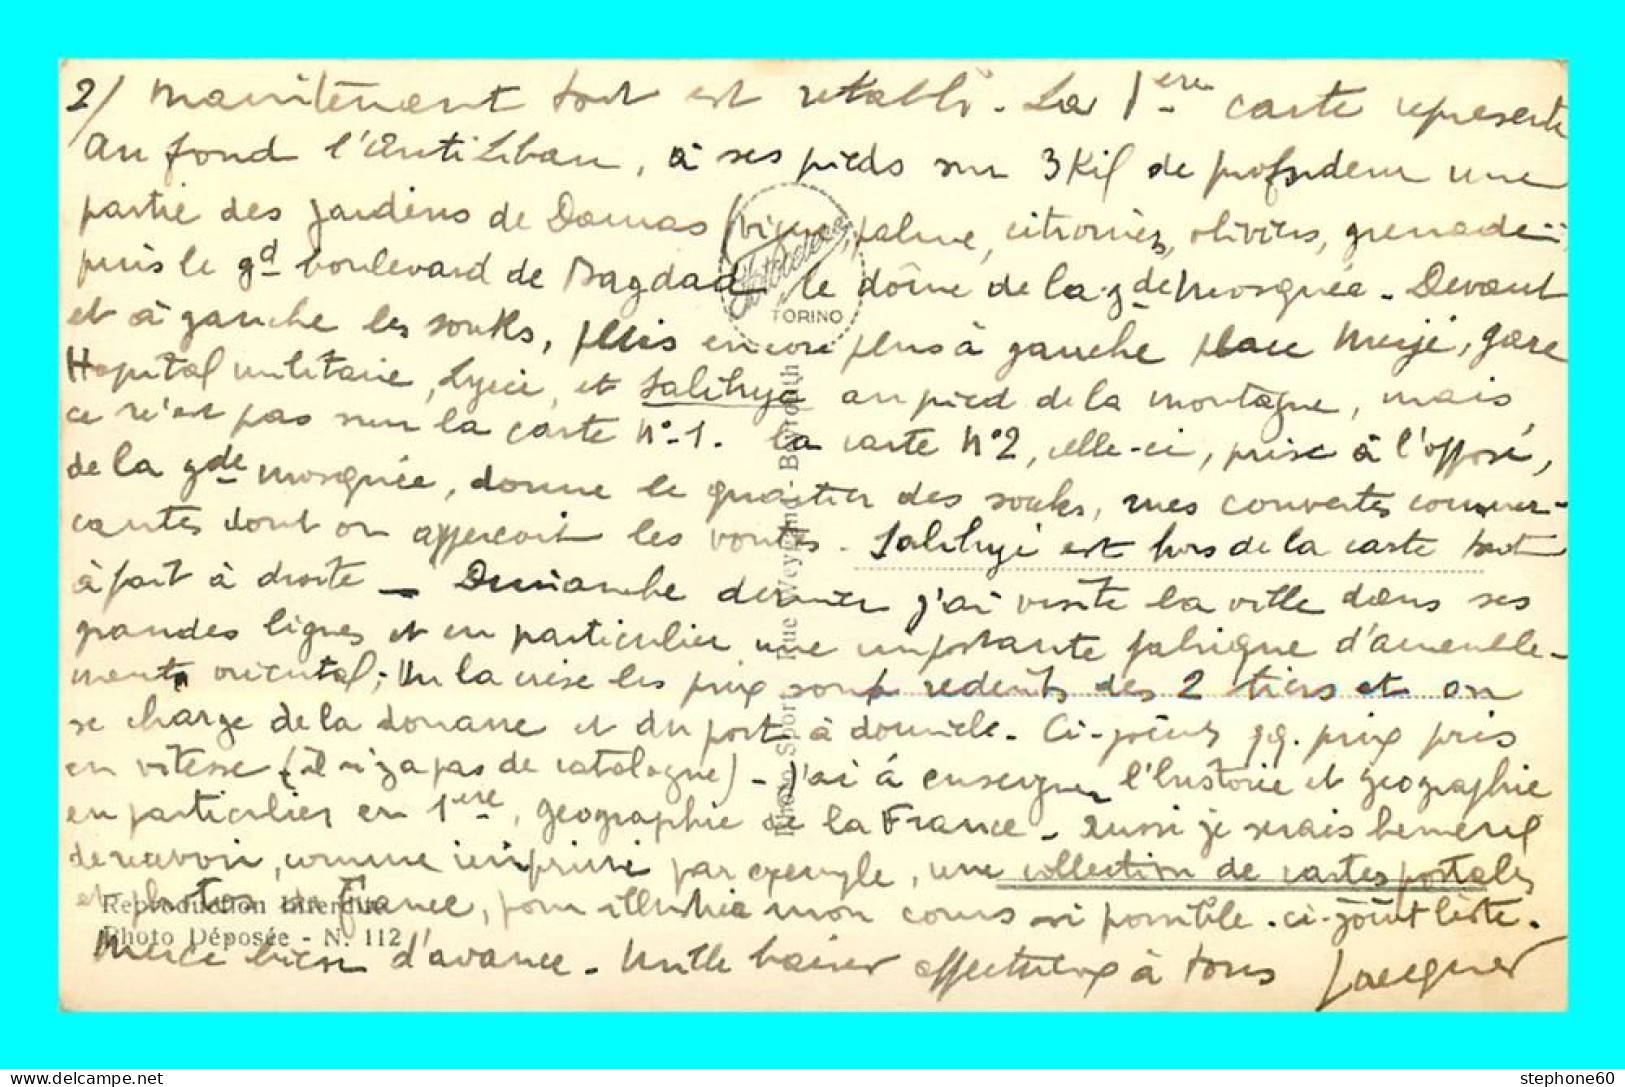 2/ maintenant tout est rétabli. La 1ère carte représente
au fond l'AntiLiban, à ses pieds sur 3 Kil de profondeur une
partie des jardins de Damas (vigne, palme, citronniers, oliviers, grenadiers
puis le gd boulevard de Bagdad le dôme de la gde Mosquée. Devant
et à gauche les souks, puis encore plus à gauche place Merjé, gare
Hopital militaire, Lycée, et Salihyé au pied de la montagne, mais
ce n'est pas sur la carte N°-1. La carte N°2, celle-ci, prise à l'opposé,
de la gde mosquée, donne le quartier des souks, rues couvertes commer-
cantes dont on apperçoit les voutes. Salihyé est hors de la carte tout
à fait à droite - Dimanche dernier j'ai visité la ville dans ses
grandes lignes et en particulier une importante fabrique d'ameuble-
ments oriental; Vu la crise les prix sont réduits des 2 tiers et on
se charge de la douane et du port à domicile. Ci-joints qq. prix pris
en vitesse (il n'y a pas de catalogue) - J'ai à enseigner l'histoire et géographie
en particulier en 1ère, géographie de la France - Aussi je serais
de recevoir, comme imprimé par exemple, une collection de cartes postales
et photos de France, pour illustrer mon cours si possible. ci-joint liste.
Merci bien d'avance - Mille baisers affectueux à tous Jacques
Fotocelere
TORINO
Photo Sport, Rue Weygand, Beyrouth
Reproduction interdite
Photo Déposée - N. 112
stephone60